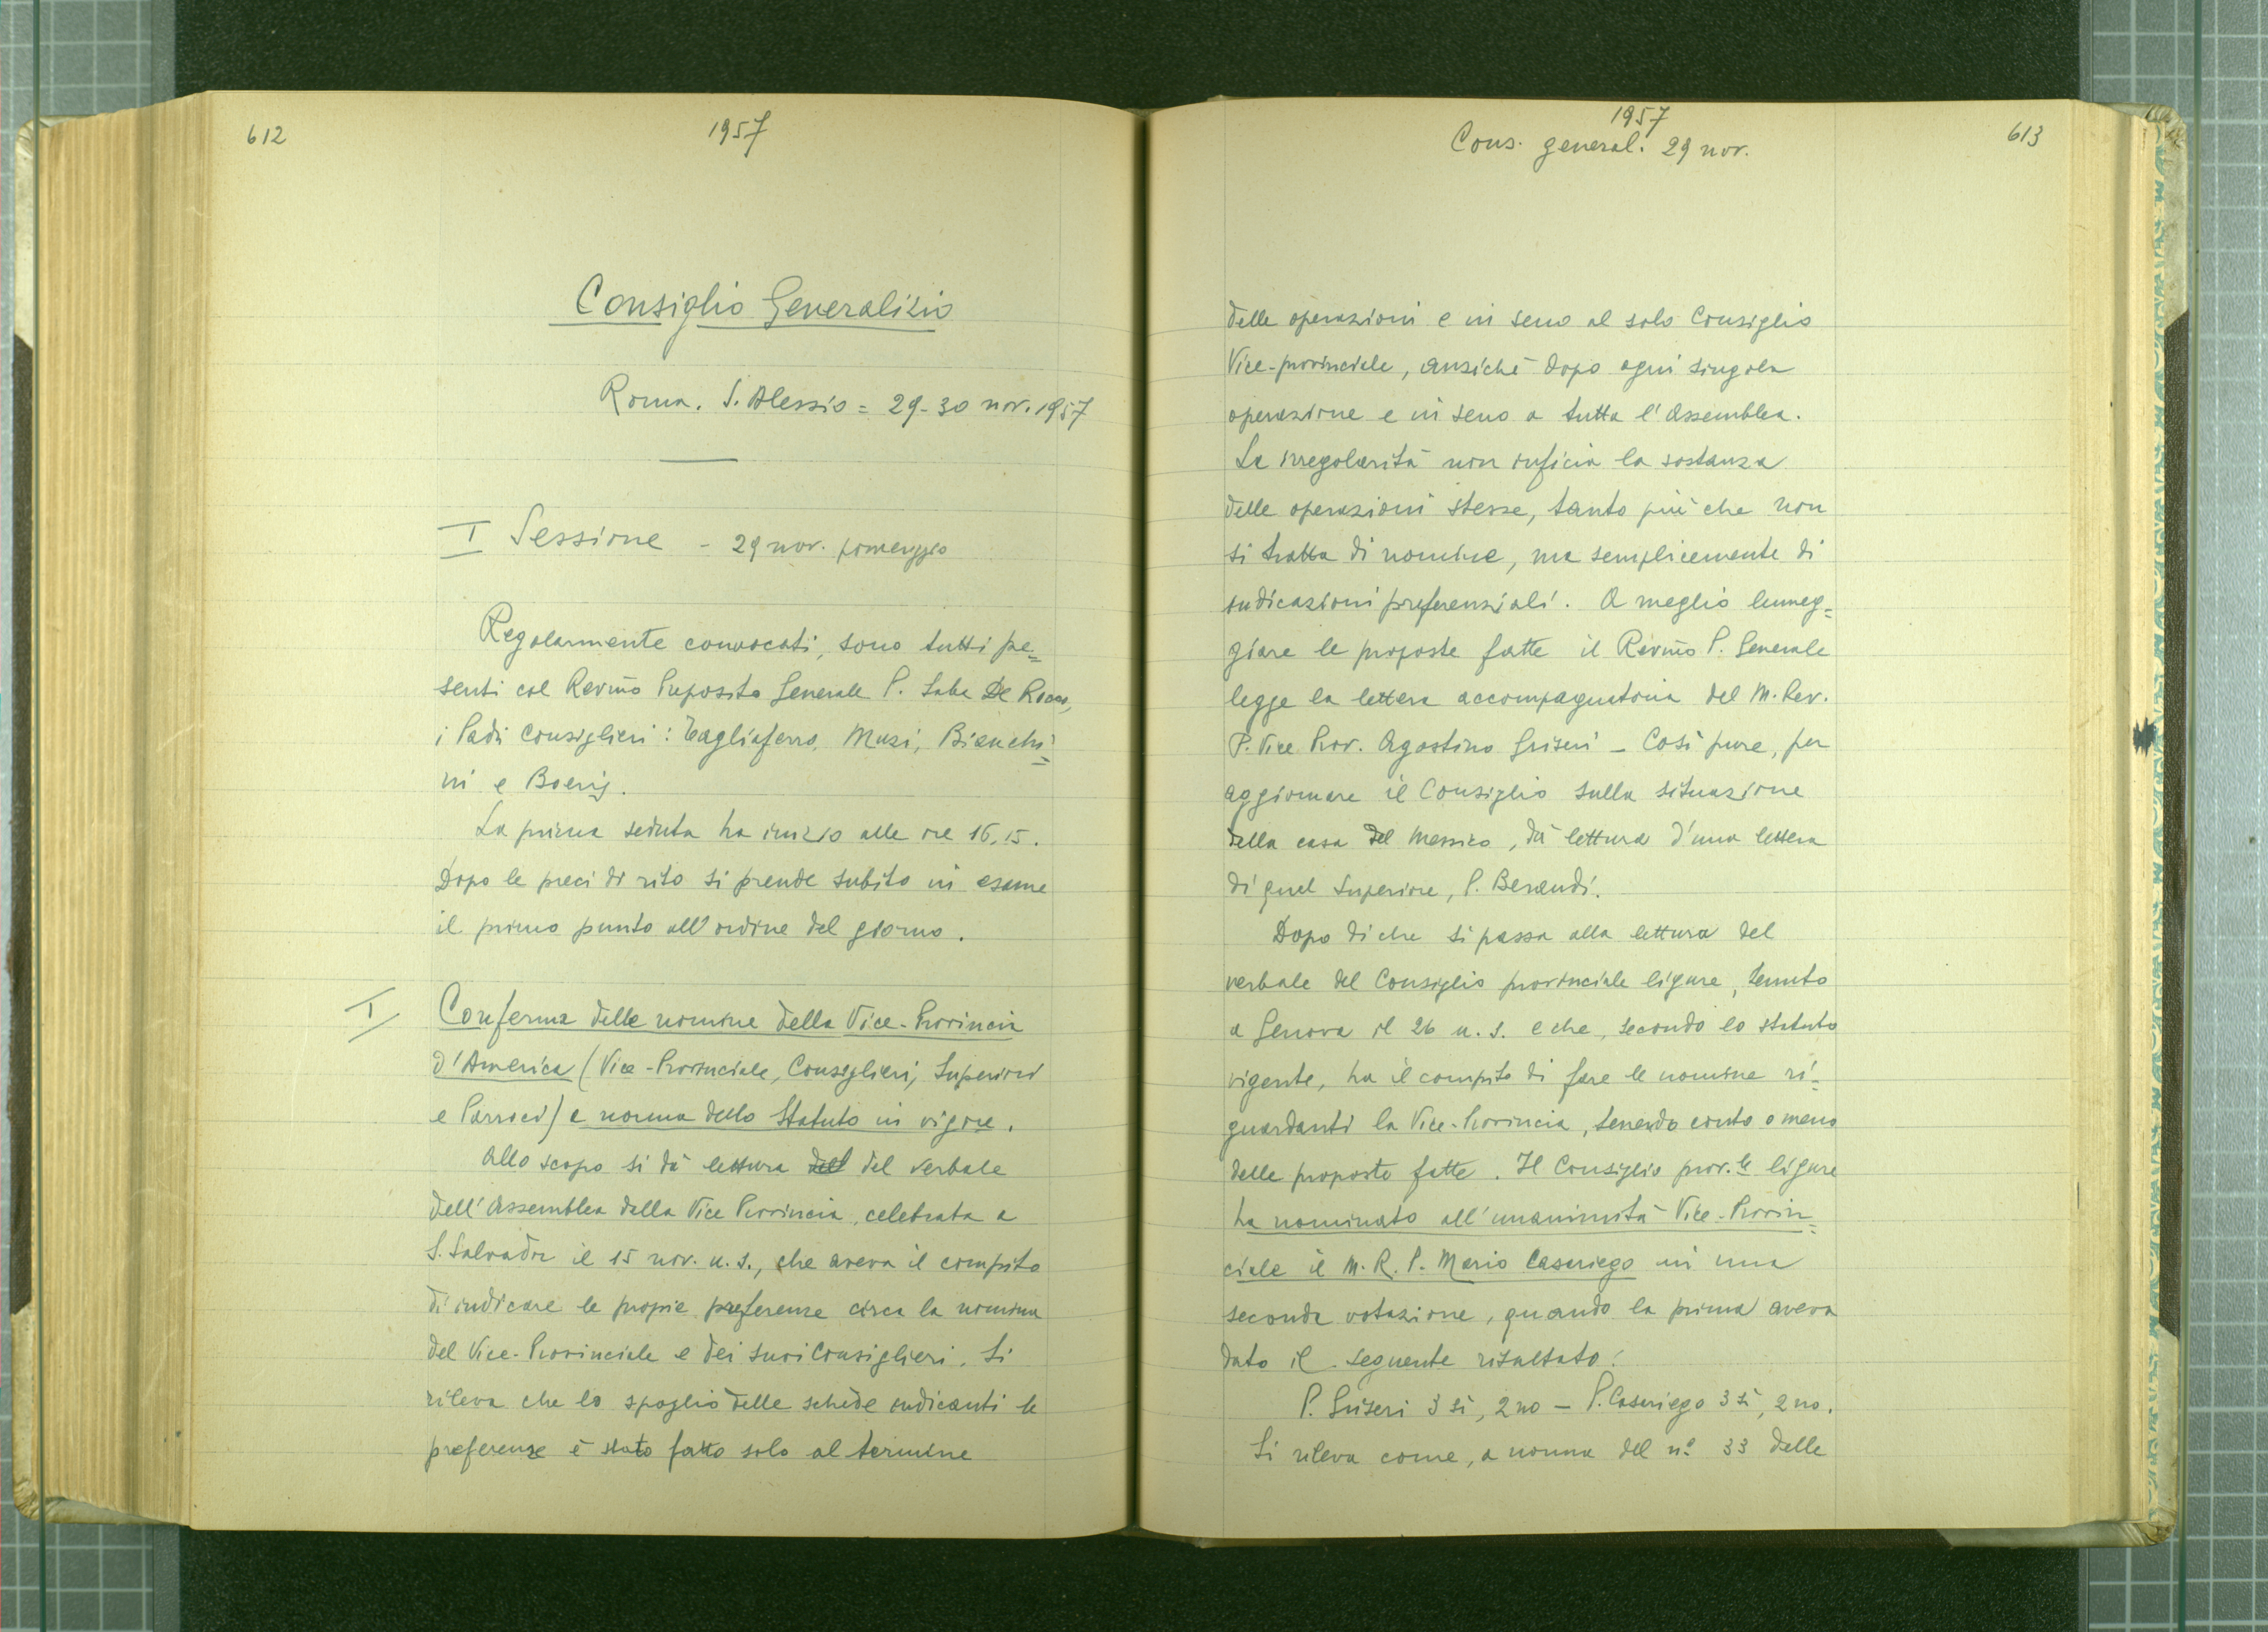 612
1957
Consiglio Generalizio
Roma. S. Alessio = 29-30 nov. 1957
I Sessione - 29 nov. pomeriggio
Regolarmente convocati, sono tutti pre=
senti col Rev.mo Preposito Generale P. Saba De Rocco,
i Padri Consiglieri: Tagliaferro, Muzi, Bianchi=
ni e Boeris.
La prima seduta ha inizio alle ore 16,15.
Dopo le preci di rito si prende subito in esame
il primo punto all'ordine del giorno.
I Conferma delle nomine della Vice-Provincia
d'America (Vice-Provinciale, Consiglieri, Superiori
e Parroci) a norma dello Statuto in vigore.
Allo scopo si dà lettura del verbale
dell'Assemblea della Vice Provincia, celebrata a
S. Salvador il 15 nov. u. s., che aveva il compito
di indicare le proprie preferenze circa la nomina
del Vice-Provinciale e dei suoi Consiglieri. Si
rileva che lo spoglio delle schede indicanti le
preferenze è stato fatto solo al termine
1957
Cons. general. 29 nov.
613
delle operazioni e in seno al solo Consiglio
Vice-provinciale, anziché dopo ogni singola
operazione e in seno a tutta l'Assemblea.
La irregolarità non inficia la sostanza
delle operazioni stesse, tanto più che non
si tratta di nomine, ma semplicemente di
indicazioni preferenziali. A meglio lumeg=
giare le proposte fatte il Rev.mo P. Generale
legge la lettera accompagnatoria del M. Rev.
P. Vice Prov. Agostino Griseri - Così pure, per
aggiornare il Consiglio sulla situazione
della casa del Messico, dà lettura d'una lettera
di quel Superiore, P. Beraudi.
Dopo di che si passa alla lettura del
verbale del Consiglio provinciale ligure, tenuto
a Genova il 26 u. s. e che, secondo lo statuto
vigente, ha il compito di fare le nomine ri=
guardanti la Vice-Provincia, tenendo conto o meno
delle proposte fatte. Il Consiglio prov.le ligure
ha nominato all'unanimità Vice-Provin=
ciale il M. R. P. Mario Casariego in una
seconda votazione, quando la prima aveva
dato il seguente risultato:
P. Griseri 3 sì, 2 no - P. Casariego 3 sì, 2 no.
Si rileva come, a norma del n° 33 delle